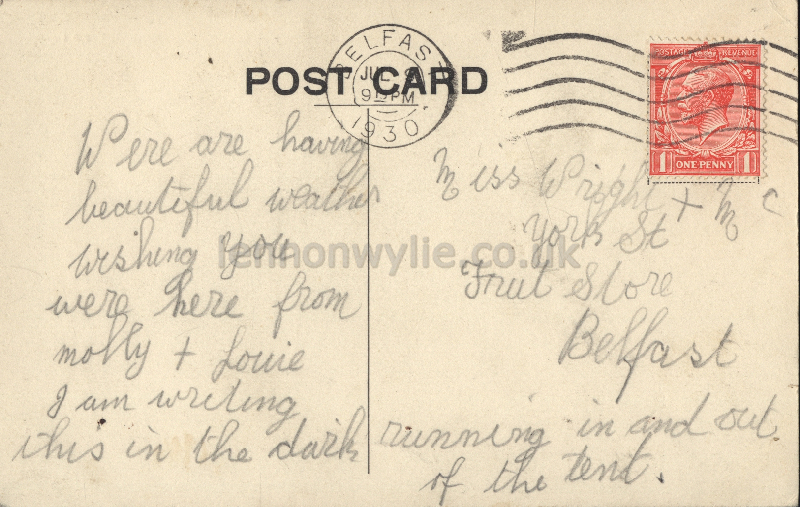 POST CARD
BELFAST
JUL
9 PM
1930
POSTAGE REVENUE
1 ONE PENNY 1
Were are having
beautiful weather
wishing you
were here from
molly + Louie
I am writing
this in the dark running in and out
of the tent.
Miss Wright + Mc
York St
Fruit Store
Belfast
lennonwylie.co.uk